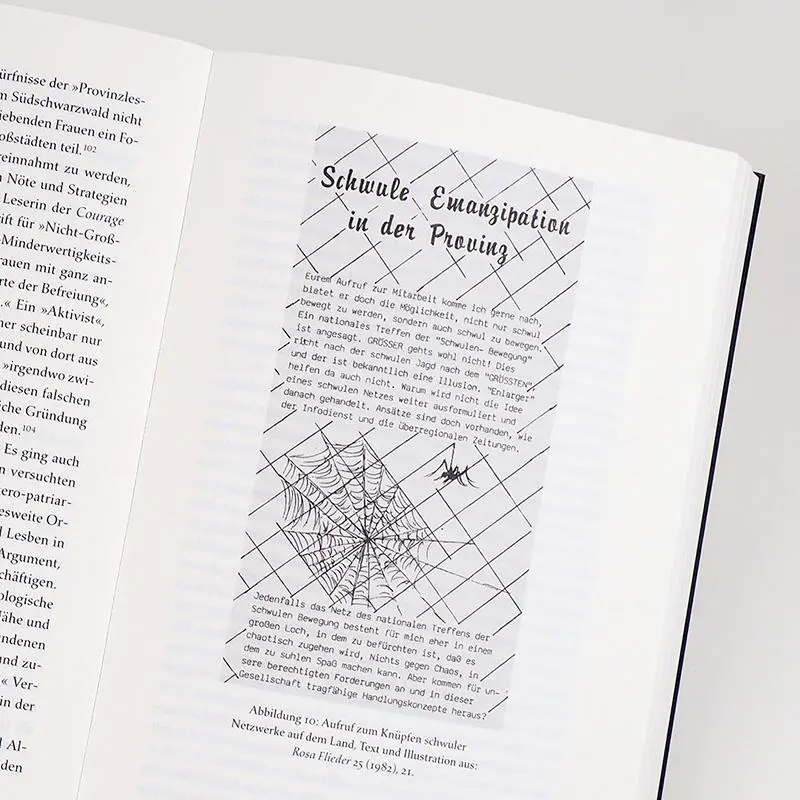 ürfnisse der »Provinzles-
m Südschwarzwald nicht
iebenden Frauen ein Fo-
oßstädten teil.¹⁰²
reinnahmt zu werden,
n Nöte und Strategien
Leserin der Courage
rift für »Nicht-Groß-
Minderwertigkeits-
rauen mit ganz an-
rte der Befreiung«,
.« Ein »Aktivist«,
ner scheinbar nur
und von dort aus
»irgendwo zwi-
diesen falschen
iche Gründung
den.¹⁰⁴
Es ging auch
n versuchten
tero-patriar-
esweite Or-
d Lesben in
Argument,
chäftigen.
ologische
Nähe und
undenen
und zu-
« Ver-
in der
d Al-
den
Schwule Emanzipation
in der Provinz
Eurem Aufruf zur Mitarbeit komme ich gerne nach,
bietet er doch die Möglichkeit, nicht nur schwul
bewegt zu werden, sondern auch schwul zu bewegen.
Ein nationales Treffen der "Schwulen- Bewegung"
ist angesagt. GRÖSSER gehts wohl nicht! Dies
richt nach der schwulen Jagd nach dem "GRÖSSTEN",
und der ist bekanntlich eine Illusion. "Enlarger"
helfen da auch nicht. Warum wird nicht die Idee
eines schwulen Netzes weiter ausformuliert und
danach gehandelt. Ansätze sind doch vorhanden, wie
der Infodienst und die überregionalen Zeitungen.
Jedenfalls das Netz des nationalen Treffens der
Schwulen Bewegung besteht für mich eher in einem
großen Loch, in dem zu befürchten ist, daß es
chaotisch zugehen wird, Nichts gegen Chaos, in
dem zu suhlen Spaß machen kann. Aber kommen für un-
sere berechtigten Forderungen an und in dieser
Gesellschaft tragfähige Handlungskonzepte heraus?
Abbildung 10: Aufruf zum Knüpfen schwuler
Netzwerke auf dem Land, Text und Illustration aus:
Rosa Flieder 25 (1982), 21.